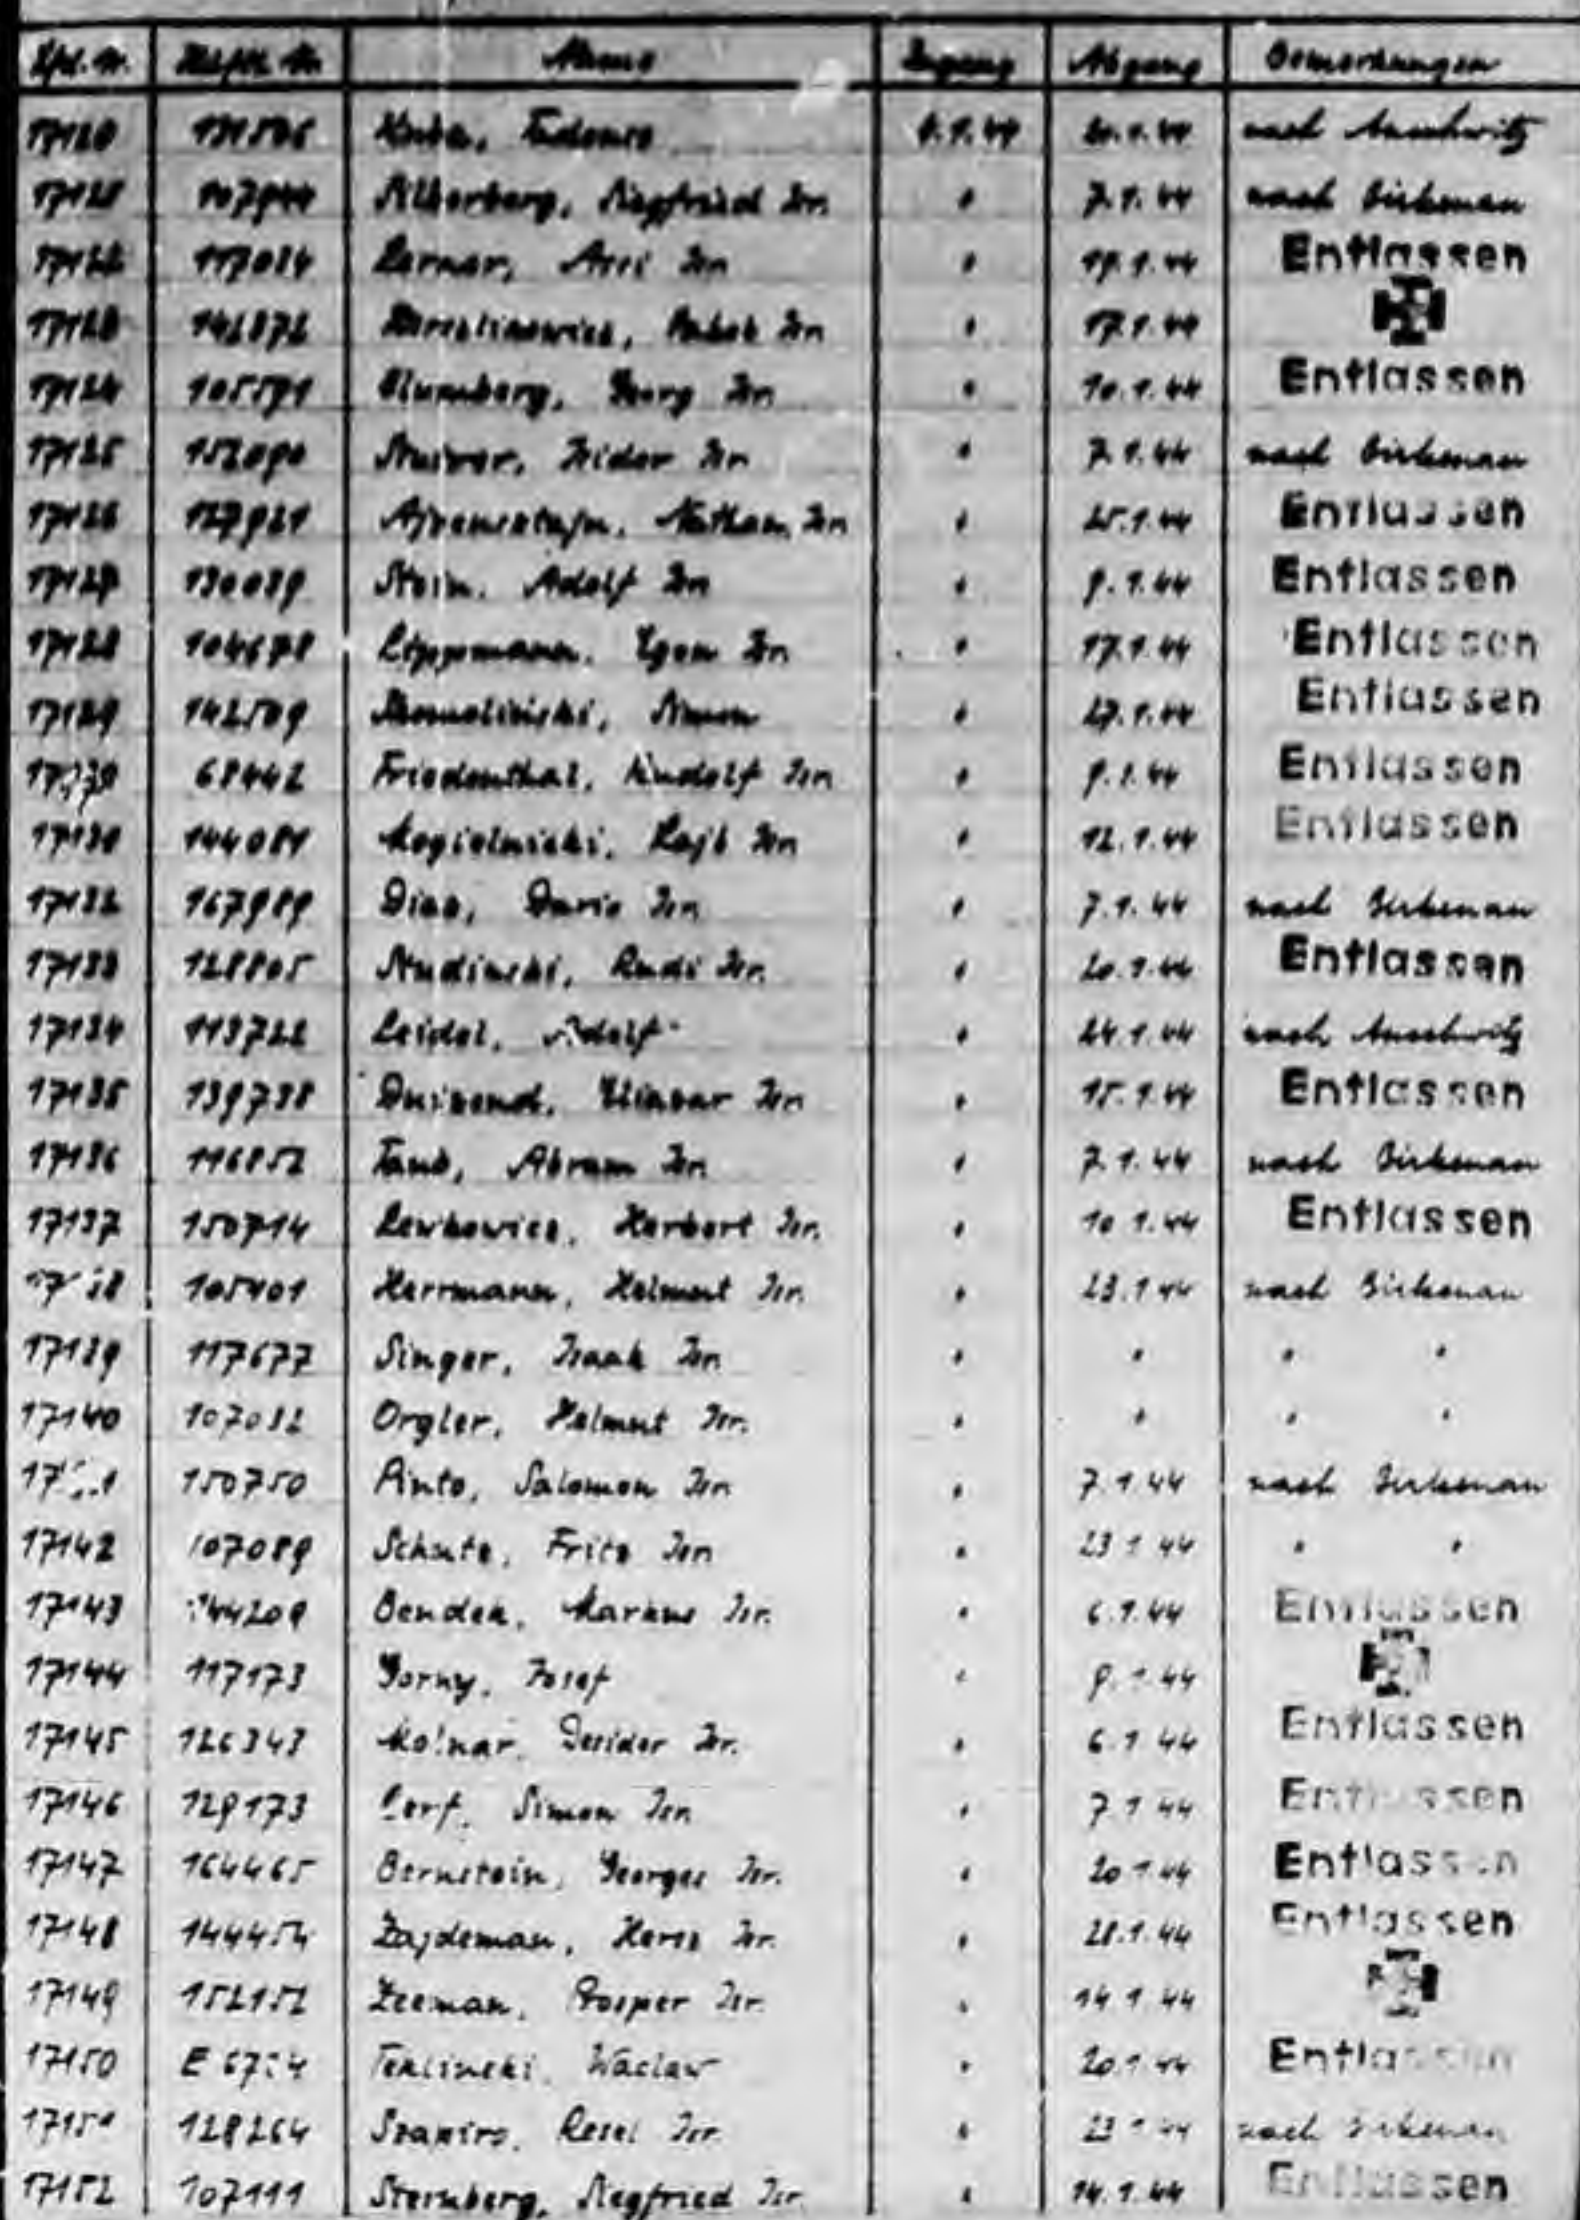 Lfd. Nr. Häftl. Nr. Name Zugang Abgang Bemerkungen
17120 Kuba, 6.1.44 20.1.44 nach Auschwitz
17121 107944 Silberberg, Siegfried Isr. " 7.1.44 nach Birkenau
17122 117024 Lerner, Isr. " 19.1.44 Entlassen
17123 142872 Isr. " 17.1.44
17124 105591 Blumberg, Georg Isr. " 10.1.44 Entlassen
17125 152090 Stuiver, Isidor Isr. " 7.1.44 nach Birkenau
17126 127921 Ajzensztajn, Nathan, Isr. " 25.1.44 Entlassen
17127 130039 Stein, Adolf Isr. " 9.1.44 Entlassen
17128 104678 Lippmann, Egon Isr. " 17.1.44 Entlassen
17129 142509 Simon " 27.1.44 Entlassen
68442 Friedenthal, Rudolf Isr. " 9.1.44 Entlassen
17131 144081 Mogielnicki, Lajb Isr. " 12.1.44 Entlassen
17132 167989 Dario Isr. " 7.1.44 nach Birkenau
17133 128805 Studinski, Rudi Isr. " 20.1.44 Entlassen
17134 113722 Leidel, Adolf " 24.1.44 nach Auschwitz
17135 139738 Duizend, Eliazar Isr. " 15.1.44 Entlassen
17136 116852 Taub, Abram Isr. " 7.1.44 nach Birkenau
17137 150714 Lewkowicz, Herbert Isr. " 10.1.44 Entlassen
105401 Herrmann, Helmut Isr. " 23.1.44 nach Birkenau
17139 117677 Singer, Isaak Isr. " " " "
17140 107032 Orgler, Helmut Isr. " " " "
150750 Pinto, Salomon Isr. " 7.1.44 nach Birkenau
17142 107089 Schutz, Fritz Isr. " 23.1.44 " "
17143 144209 Bender, Markus Isr. " 6.1.44 Entlassen
17144 117173 Gorny, Josef " 9.1.44
17145 126343 Molnar, Desider Isr. " 6.1.44 Entlassen
17146 129173 Cerf, Simon Isr. " 7.1.44 Entlassen
17147 164465 Bernstein, Georges Isr. " 20.1.44 Entlassen
17148 144454 Zajdeman, Hersz Isr. " 28.1.44 Entlassen
17149 152152 Zeeman, Prosper Isr. " 14.1.44
17150 Teklinski, Waclaw " 20.1.44 Entlassen
17151 128264 Szapiro, Resel Isr. " 23.1.44 nach Birkenau
17152 107111 Sternberg, Siegfried Isr. " 14.1.44 Entlassen